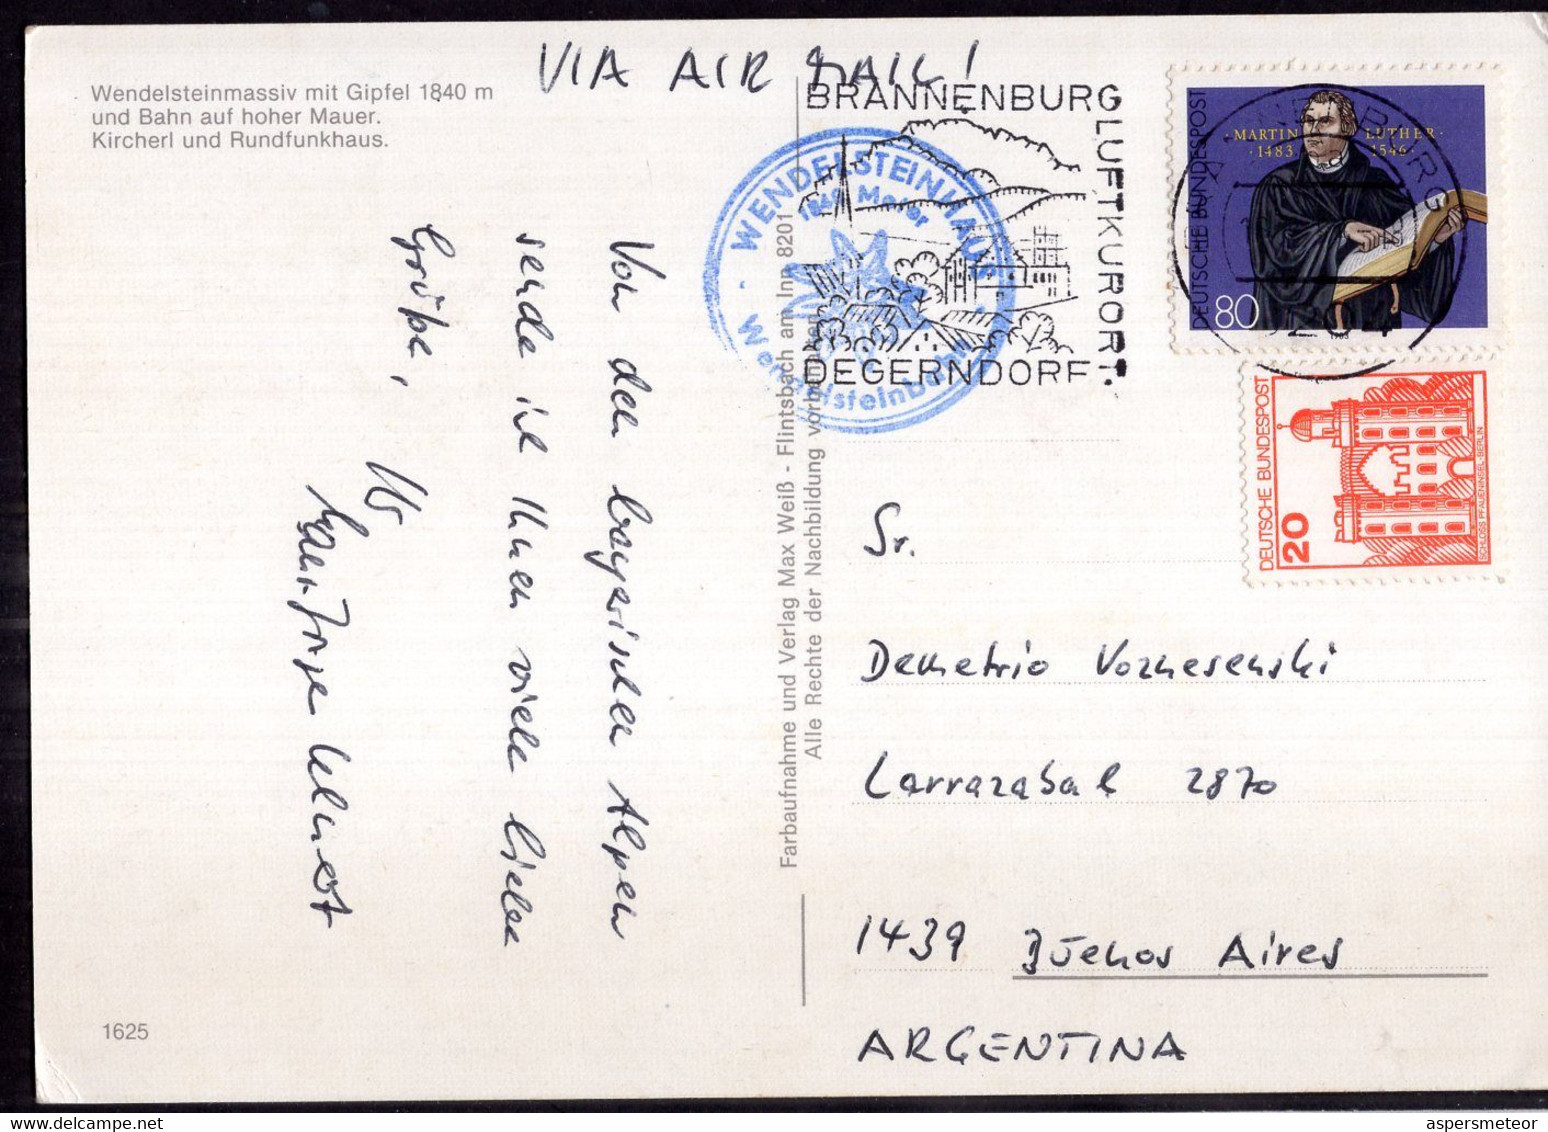 VIA AIR MAIL!
Wendelsteinmassiv mit Gipfel 1840 m
und Bahn auf hoher Mauer.
Kircherl und Rundfunkhaus.
Von den bayerischen Alpen
sende ich Ihnen viele liebe
Grüße,
Ihr
1625
Farbaufnahme und Verlag Max Weiß - Flintsbach am Inn 8201
Alle Rechte der Nachbildung vorbehalten
WENDELSTEINHAUS
1840 Meter
Wendelsteinbahn
BRANNENBURG
LUFTKURORT
DEGERNDORF
DEUTSCHE BUNDESPOST
MARTIN LUTHER
1483 1546
80
1983
DEUTSCHE BUNDESPOST
20
SCHLOSS PFAUENINSEL-BERLIN
Sr.
Demetrio Voznesenski
Larrazabal 2870
1439 Buenos Aires
ARGENTINA
aspersmeteor